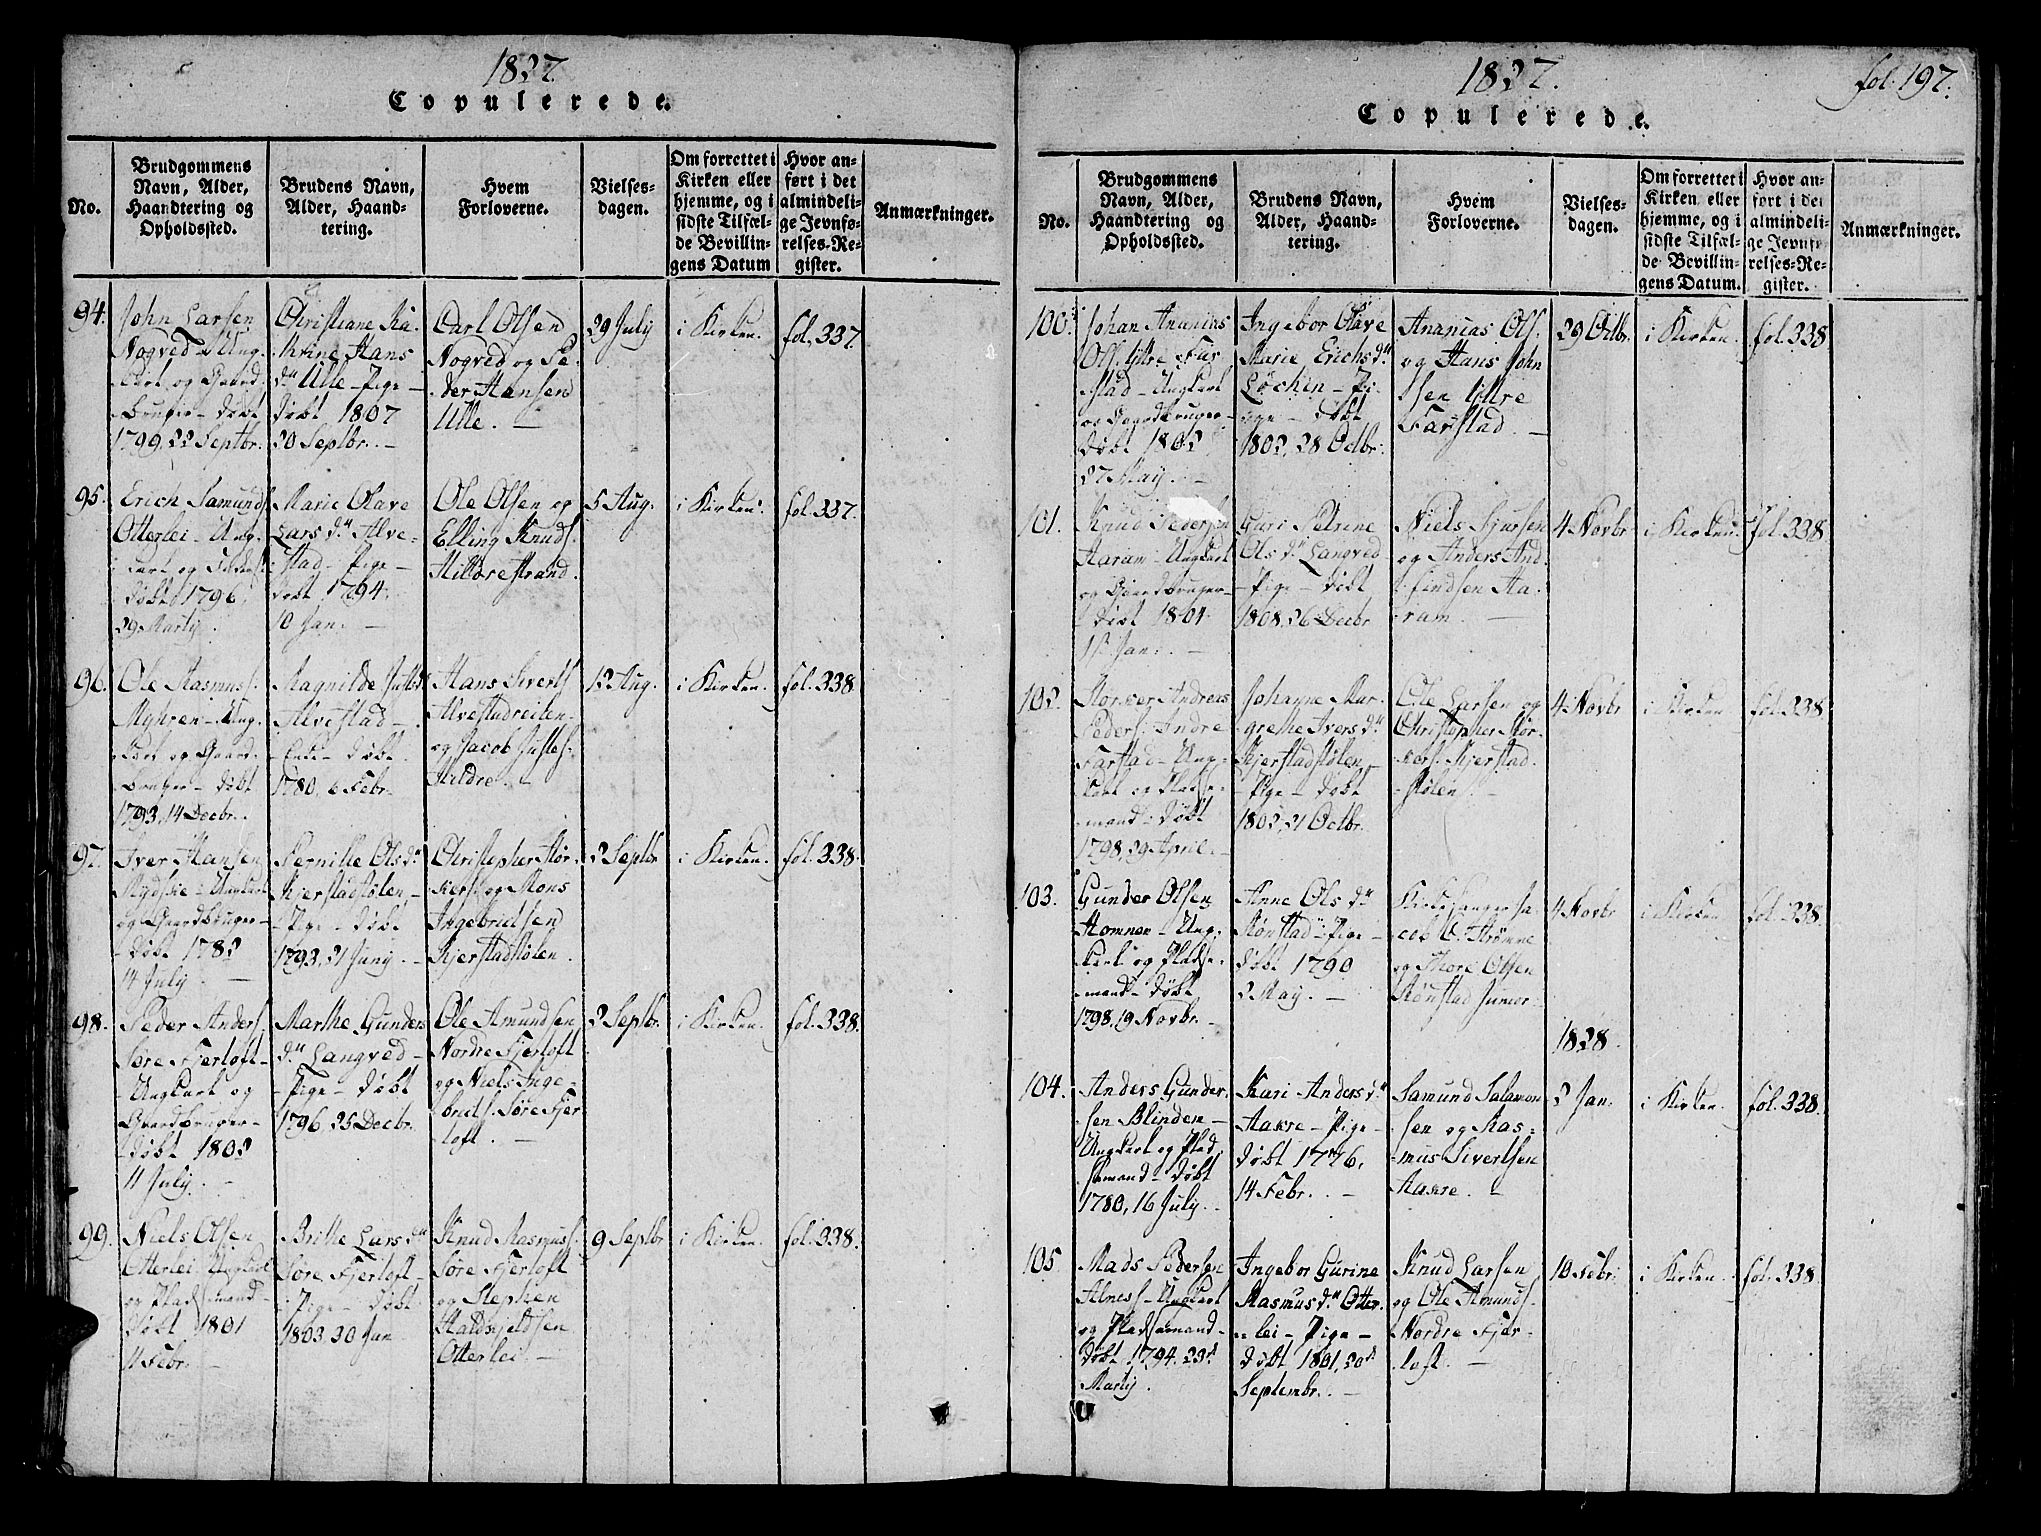 1827.
Copulerede.
No.
Brudgommens
Navn, Alder,
Haandtering og
Opholdssted.
Brudens Navn,
Alder, Haand-
tering.
Hvem
Forloverne.
Vielses-
dagen.
Om forrettet i
Kirken eller
hjemme, og i
sidste Tilfæl-
de Bevillin-
gens Datum
Hvor an-
ført i det
almindeli-
ge Jevnfø-
relses-Re-
gister.
Anmærkninger.
94.
John Larsen
Nogved - Ung-
karl og Gaard-
bruger - døbt
1799, 22 Septbr.
Christiane Ka-
thrine Hans
dr. Ulle - Pige -
døbt 1807
20 Septbr. -
Carl Olsen
Nogved og Pe-
der Hansen
Ulle. -
29 July
i Kirken.
fol. 337.
95.
Erich Samunds.
Otterlei - Ung-
karl og
døbt 1796,
29 Martij.
Marie Olave
Lars dr. Alve-
stad - Pige -
døbt 1794
10 Jan. -
Ole Olsen og
Elling Knuds.
Hildrestrand.
5 Aug.
i Kirken.
fol. 337.
96.
Ole Rasmuss.
Myhren - Ung-
karl og Gaard-
bruger - døbt
1793, 14 Decbr.
Magnilde
Alvestad -
Enke - døbt
1780, 6 Febr.
Hans Siverts.
Alvestadreiten
og Jacob Jules.
Hildre. -
12 Aug.
i Kirken.
fol. 338.
97.
Iver Hansen
Rydskie - Ungkarl
og Gaardbruger -
døbt 1782
14 July. -
Pernille Ols dr.
Kjerstadstølen -
- Pige - døbt
1793, 21 Juny. -
Christopher Stor-
kers. og Mons
Ingebrictsen
Kjerstadstølen.
2 Septbr
i Kirken.
fol. 338.
98.
Peder Anders.
Søre Fjertoft -
- Ungkarl og
Gaardbruger -
døbt 1802
11 July. -
Marthe Gunders
dr. Langved -
- Pige - døbt
1796, 25 Decbr.
Ole Amundsen
Nordre Fjertoft
og Niels Inge-
brits. Søre Fjer
toft. -
2 Septbr.
i Kirken.
fol. 338.
99.
Niels Olsen
Otterlei - Ungkarl
og Pladsemand -
døbt 1801
11 Febr. -
Brithe Lars dr.
Søre Fjertoft -
- Pige - døbt
1803, 30 Jan
Knud Rasmuss.
Søre Fjertoft
og Stephen
Haldskjeldsen
Otterlei. -
9 Septbr
i Kirken.
fol. 338.
1827.
fol. 197.
Copulerede.
No.
Brudgommens
Navn, Alder,
Haandtering og
Opholdssted.
Brudens Navn,
Alder, Haand-
tering.
Hvem
Forloverne.
Vielses-
dagen.
Om forrettet i
Kirken eller
hjemme, og i
sidste Tilfæl-
de Bevillin-
gens Datum.
Hvor an-
ført i det
almindeli-
ge Jevnfø-
relses-Re-
gister.
Anmærkninger.
100.
Johan Ananias
Ols. Yttre Far-
stad - Ungkarl
og Gaardbruger -
døbt 1802,
27 May. -
Ingebor Olave
Marie Erichs dr.
Løchen - Pi-
ge - døbt
1802, 28 Octbr.
Ananias Ols.
og Hans John
sen Yttre
Farstad. -
29 Octbr.
i Kirken.
fol. 338
101.
Knud Pedersen
Haram - Ungkarl
og Gaardbruger -
døbt 1804.
Jan. -
Guri Petrine
Ols dr. Langved
- Pige - døbt
1808, 26 Decbr
Niels Sjursen
og Anders And-
findsen Ha-
ram. -
4 Novbr
i Kirken.
fol. 338
102.
Storker Andreas
Peders. Indre
Farstad - Ung-
karl og Pladse-
mand - døbt
1798, 29 April. -
Johanne Mar-
grethe Ivers dr.
Kjerstadstølen -
- Pige - døbt
1802, 21 Octbr.
Ole Larsen og
Christopher Stor-
kers. Kjerstad-
stølen. -
4 Novbr
i Kirken
fol. 338
103.
Gunder Olsen
Hamnen - Ung-
karl og Pladse-
mand - døbt
1798, 19 Novbr. -
Anne Ols dr.
Rønstad - Pige -
døbt 1790
2 May. -
Kirkesanger Ja-
cob O. Strømme
og Thore Olsen
Rønstad junior -
4 Novbr
i Kirken
fol. 338
1828.
104.
Anders Gunder-
sen Blinden -
Ungkarl og Plad-
semand - døbt
1780, 16 July. -
Kari Anders dr.
Aakre - Pige -
døbt 1776,
14 Febr. -
Samund Salamon
sen og Ras-
mus Sivertsen
Aakre. -
2 Jan.
i Kirken.
fol. 338.
105
Mads Pedersen
Alness - Ungkarl
og Pladsemand -
døbt 1794, 23d
Martij.
Ingebor Gurine
Rasmus dr. Otter-
lei - Pige -
døbt 1801, 20d
Septembr. -
Knud Larsen
og Ole Amunds.
Nordre Fjer-
toft. -
10 Febr.
i Kirken.
fol. 338.